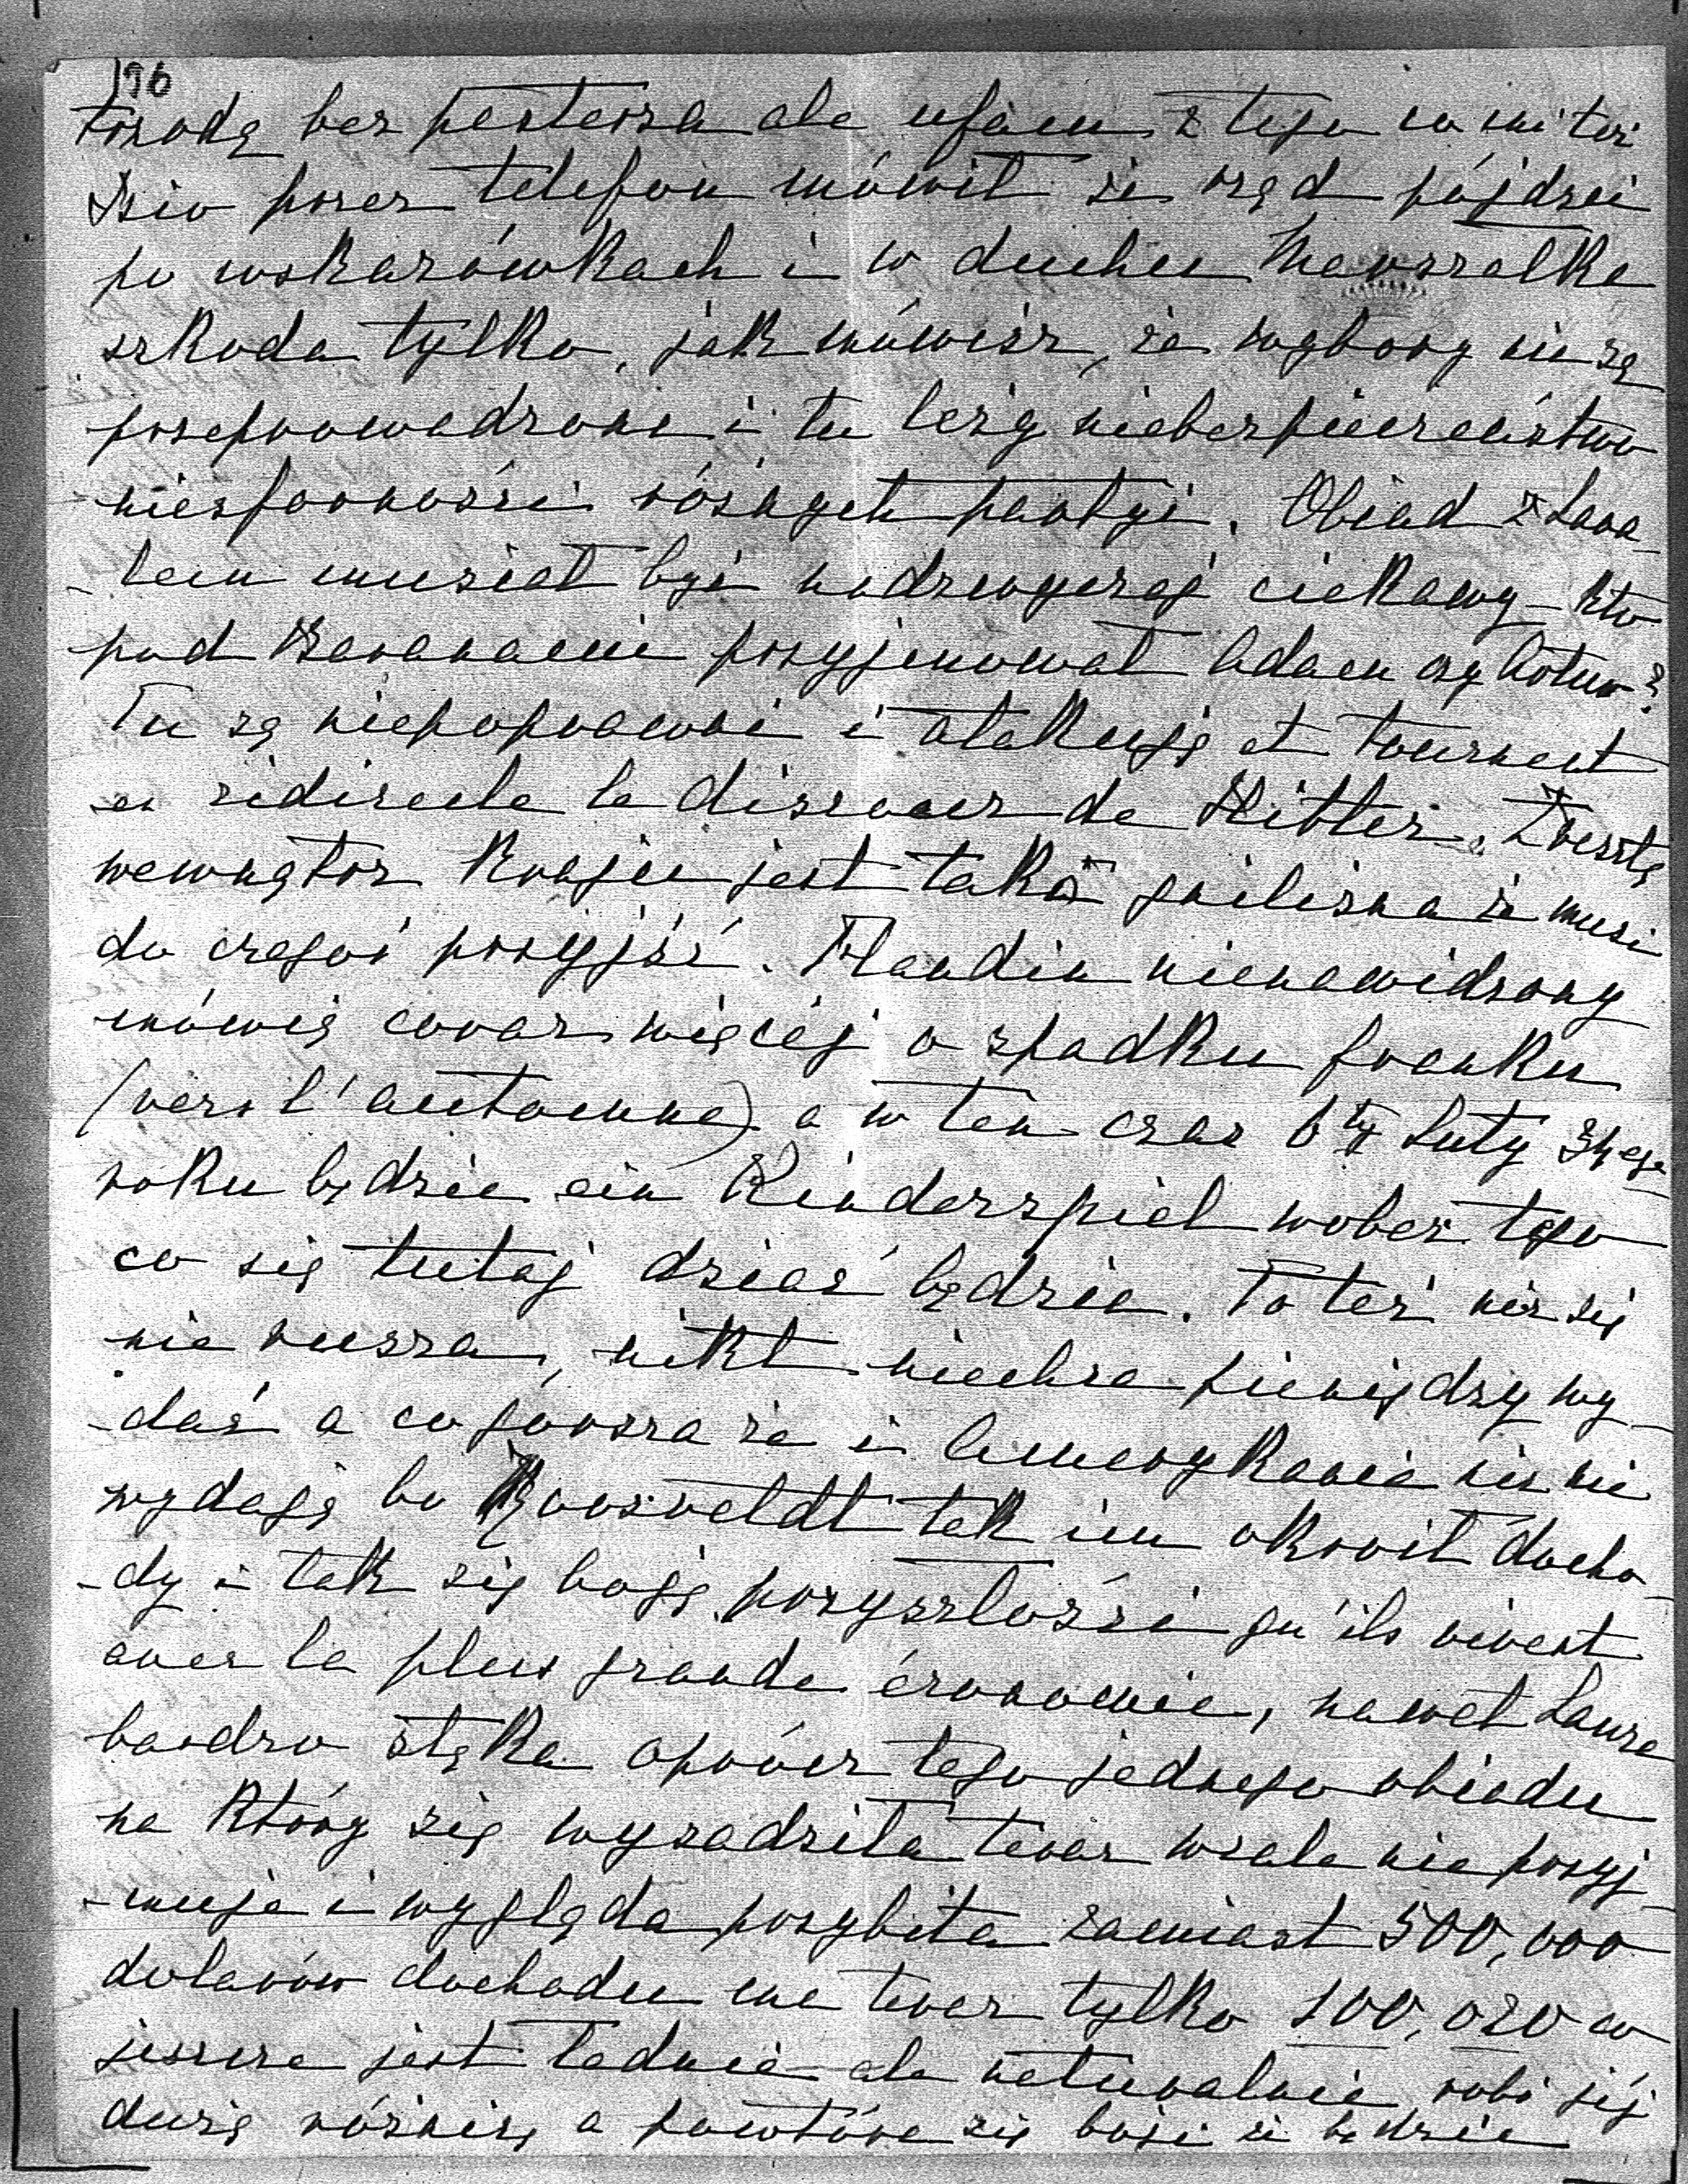 196
trzodę bez pasterza ale ufam z tego co mi też
przez telefon mówił że rząd pójdzie
po wskazówkach i w duchu Marszałka
szkoda tylko, jak mówisz, że wybory nie są
przeprowadzone i tu leży niebezpieczeństwo
niesforności różnych partyi. Obiad z Lava-
-lem musiał być nadzwyczaj ciekawy – kto
pod Baranami przyjmował Adam czy Artur?
Tu są niepoprawni i atakują et tournent
en ridicule le discour de Hitler. Zresztą
wewnątrz kraju jest taka zgnilizna że musi
do czegoś przyjść. Flandin nienawidzony
mówią coraz więcej o spadku franku
(vers l'automne) a w ten czas 6ty Luty 34ego
roku będzie ein Kinderspiel wobec tego
co się tutaj dziać będzie. To też nic się
nie rusza, nikt niechce pieniędzy wy-
-dać a co gorsza że i Amerykanie nic nie
wydają bo Roosveldt tak im okroił docho-
-dy i tak się boją przyszłości qu'ils vivent
avec la plus grande économie, nawet Laura
bardzo stęka oprócz tego jednego obiadu
na który się wysadziła teraz wcale nie przyj-
-muje i wygląda przybita zamiast 500,000
dolarów dochodu ma teraz tylko 100,000 co
jeszcze jest ładnie ale naturalnie robi jej
dużą różnicę a powtóre się boi że będzie